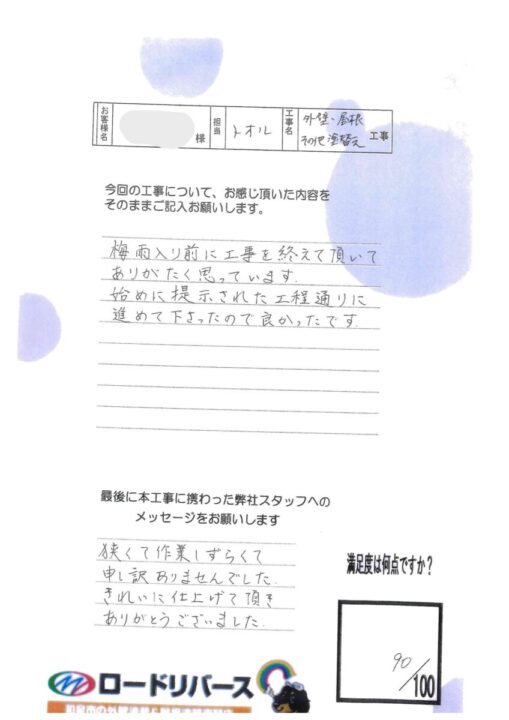 お客様名 様 担当 トオル 工事名 外壁・屋根
その他塗替え 工事
今回の工事について、お感じ頂いた内容を
そのままご記入お願いします。
梅雨入り前に工事を終えて頂いて
ありがたく思っています.
始めに提示された工程通りに
進めて下さったので良かったです.
最後に本工事に携わった弊社スタッフへの
メッセージをお願いします
狭くて作業しずらくて
申し訳ありませんでした.
きれいに仕上げて頂き
ありがとうございました.
満足度は何点ですか?
90/100
ロードリバース